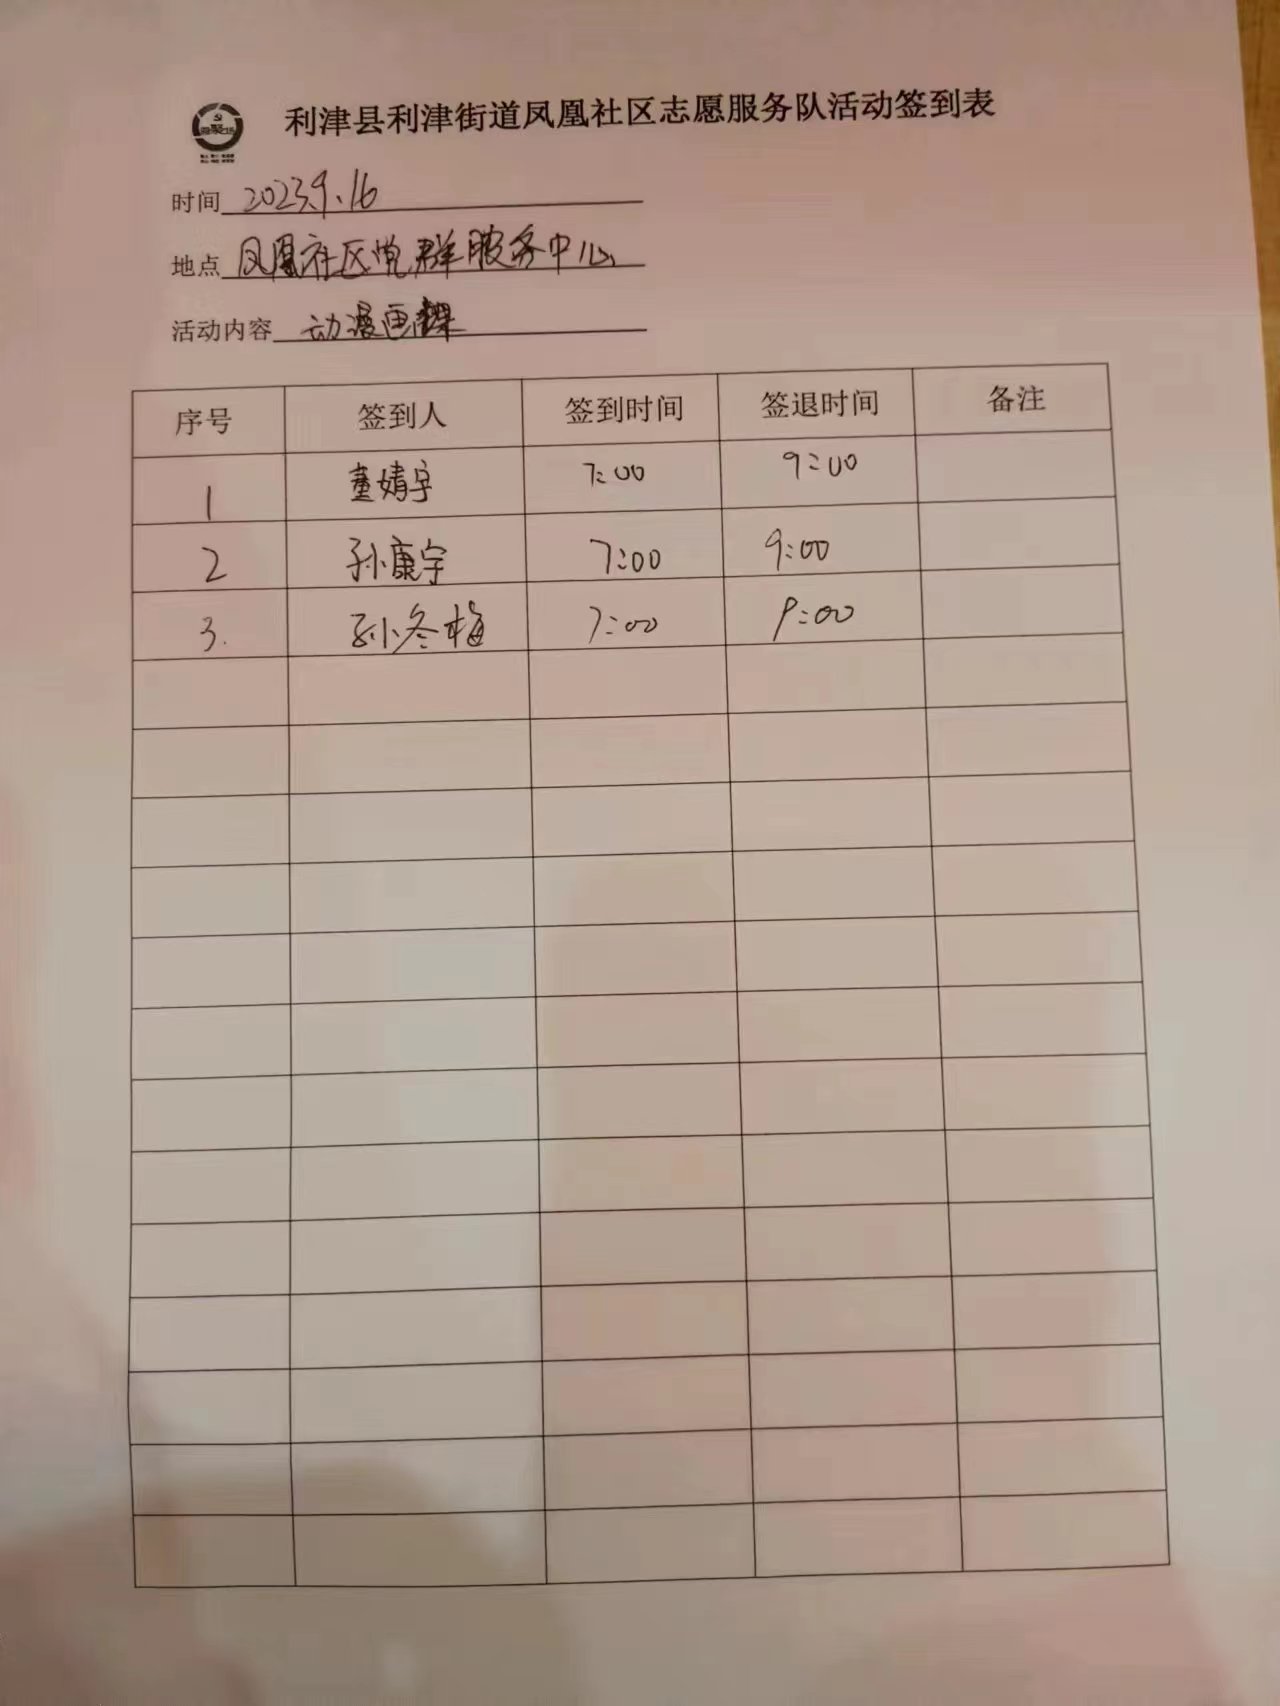 利津县利津街道凤凰社区志愿服务队活动签到表
时间 2023.9.16
地点 凤凰社区党群服务中心
活动内容 动漫画课
序号 签到人 签到时间 签退时间 备注
1 董婧宇 7:00 9:00
2 孙康宇 7:00 9:00
3. 孙冬梅 7:00 9:00